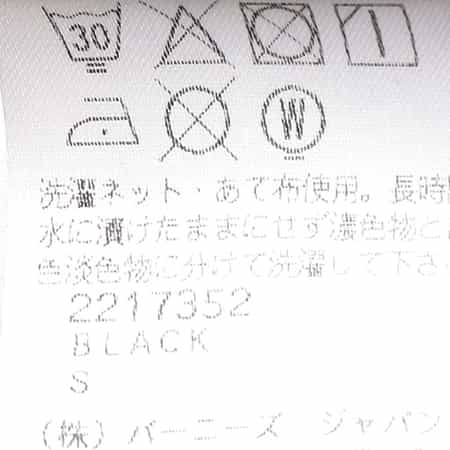 30
W
洗濯ネット・あて布使用。長時
水に漬けたままにせず濃色物と
色淡色物に分けて洗濯して下さ
2217352
BLACK
S
(株) バーニーズ ジャパン